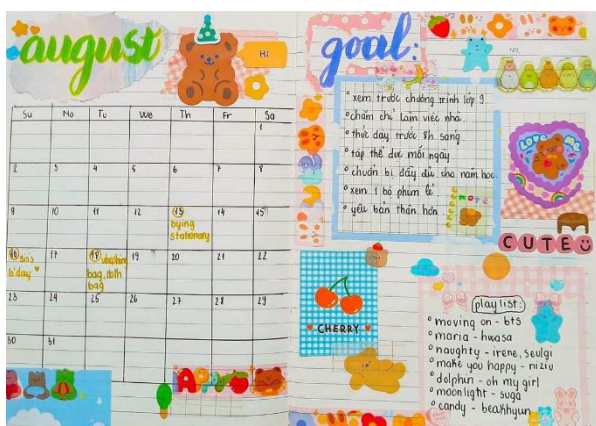 august
Hi
Su Mo Tu We Th Fr Sa
1
2 3 4 5 6 7 8
9 10 11 12 13 14 15
bying
stationary
16 17 18 19 20 21 22
b'day
bag
23 24 25 26 27 28 29
30 31
goal:
NO.
xem trước chương trình lớp 9
chăm chỉ làm việc nhà.
thức dậy trước 8h sáng
tập thể dục mỗi ngày
chuẩn bị đầy đủ cho năm học
xem 1 bộ phim lẻ
yêu bản thân hơn
Love me
CUTE
CHERRY
playlist:
moving on - bts
maria - hwasa
naughty - irene, seulgi
make you happy - niziu
dolphin - oh my girl
moonlight - suga
candy - beakhyun